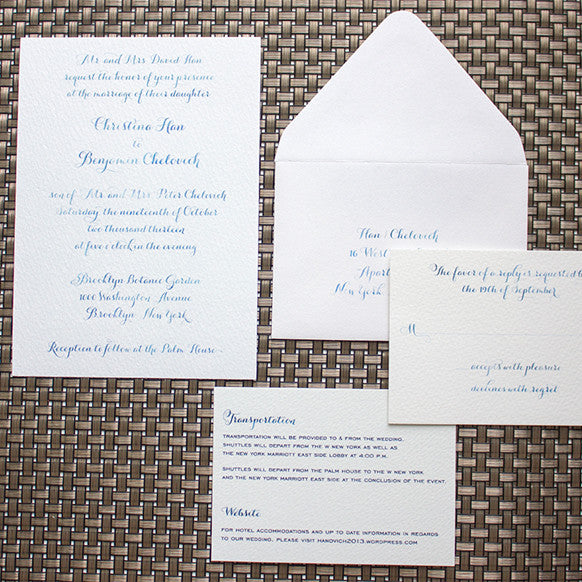 Mr and Mrs David Han
request the honor of your presence
at the marriage of their daughter
Christina Han
to
Benjamin Chelovich
son of Mr and Mrs Peter Chelovich
Saturday, the nineteenth of October
two thousand thirteen
at five o'clock in the evening
Brooklyn Botanic Garden
1000 Washington Avenue
Brooklyn New York
Reception to follow at the Palm House
Han Chelovich
16 West
Apart
New York
The favor of a reply is requested
the 19th of September
M
accepts with pleasure
declines with regret
Transportation
TRANSPORTATION WILL BE PROVIDED TO & FROM THE WEDDING.
SHUTTLES WILL DEPART FROM THE W NEW YORK AS WELL AS
THE NEW YORK MARRIOTT EAST SIDE LOBBY AT 4:00 P.M.
SHUTTLES WILL DEPART FROM THE PALM HOUSE TO THE W NEW YORK
AND THE NEW YORK MARRIOTT EAST SIDE AT THE CONCLUSION OF THE EVENT.
Website
FOR HOTEL ACCOMMODATIONS AND UP TO DATE INFORMATION IN REGARDS
TO OUR WEDDING, PLEASE VISIT HANOVICH2013.WORDPRESS.COM